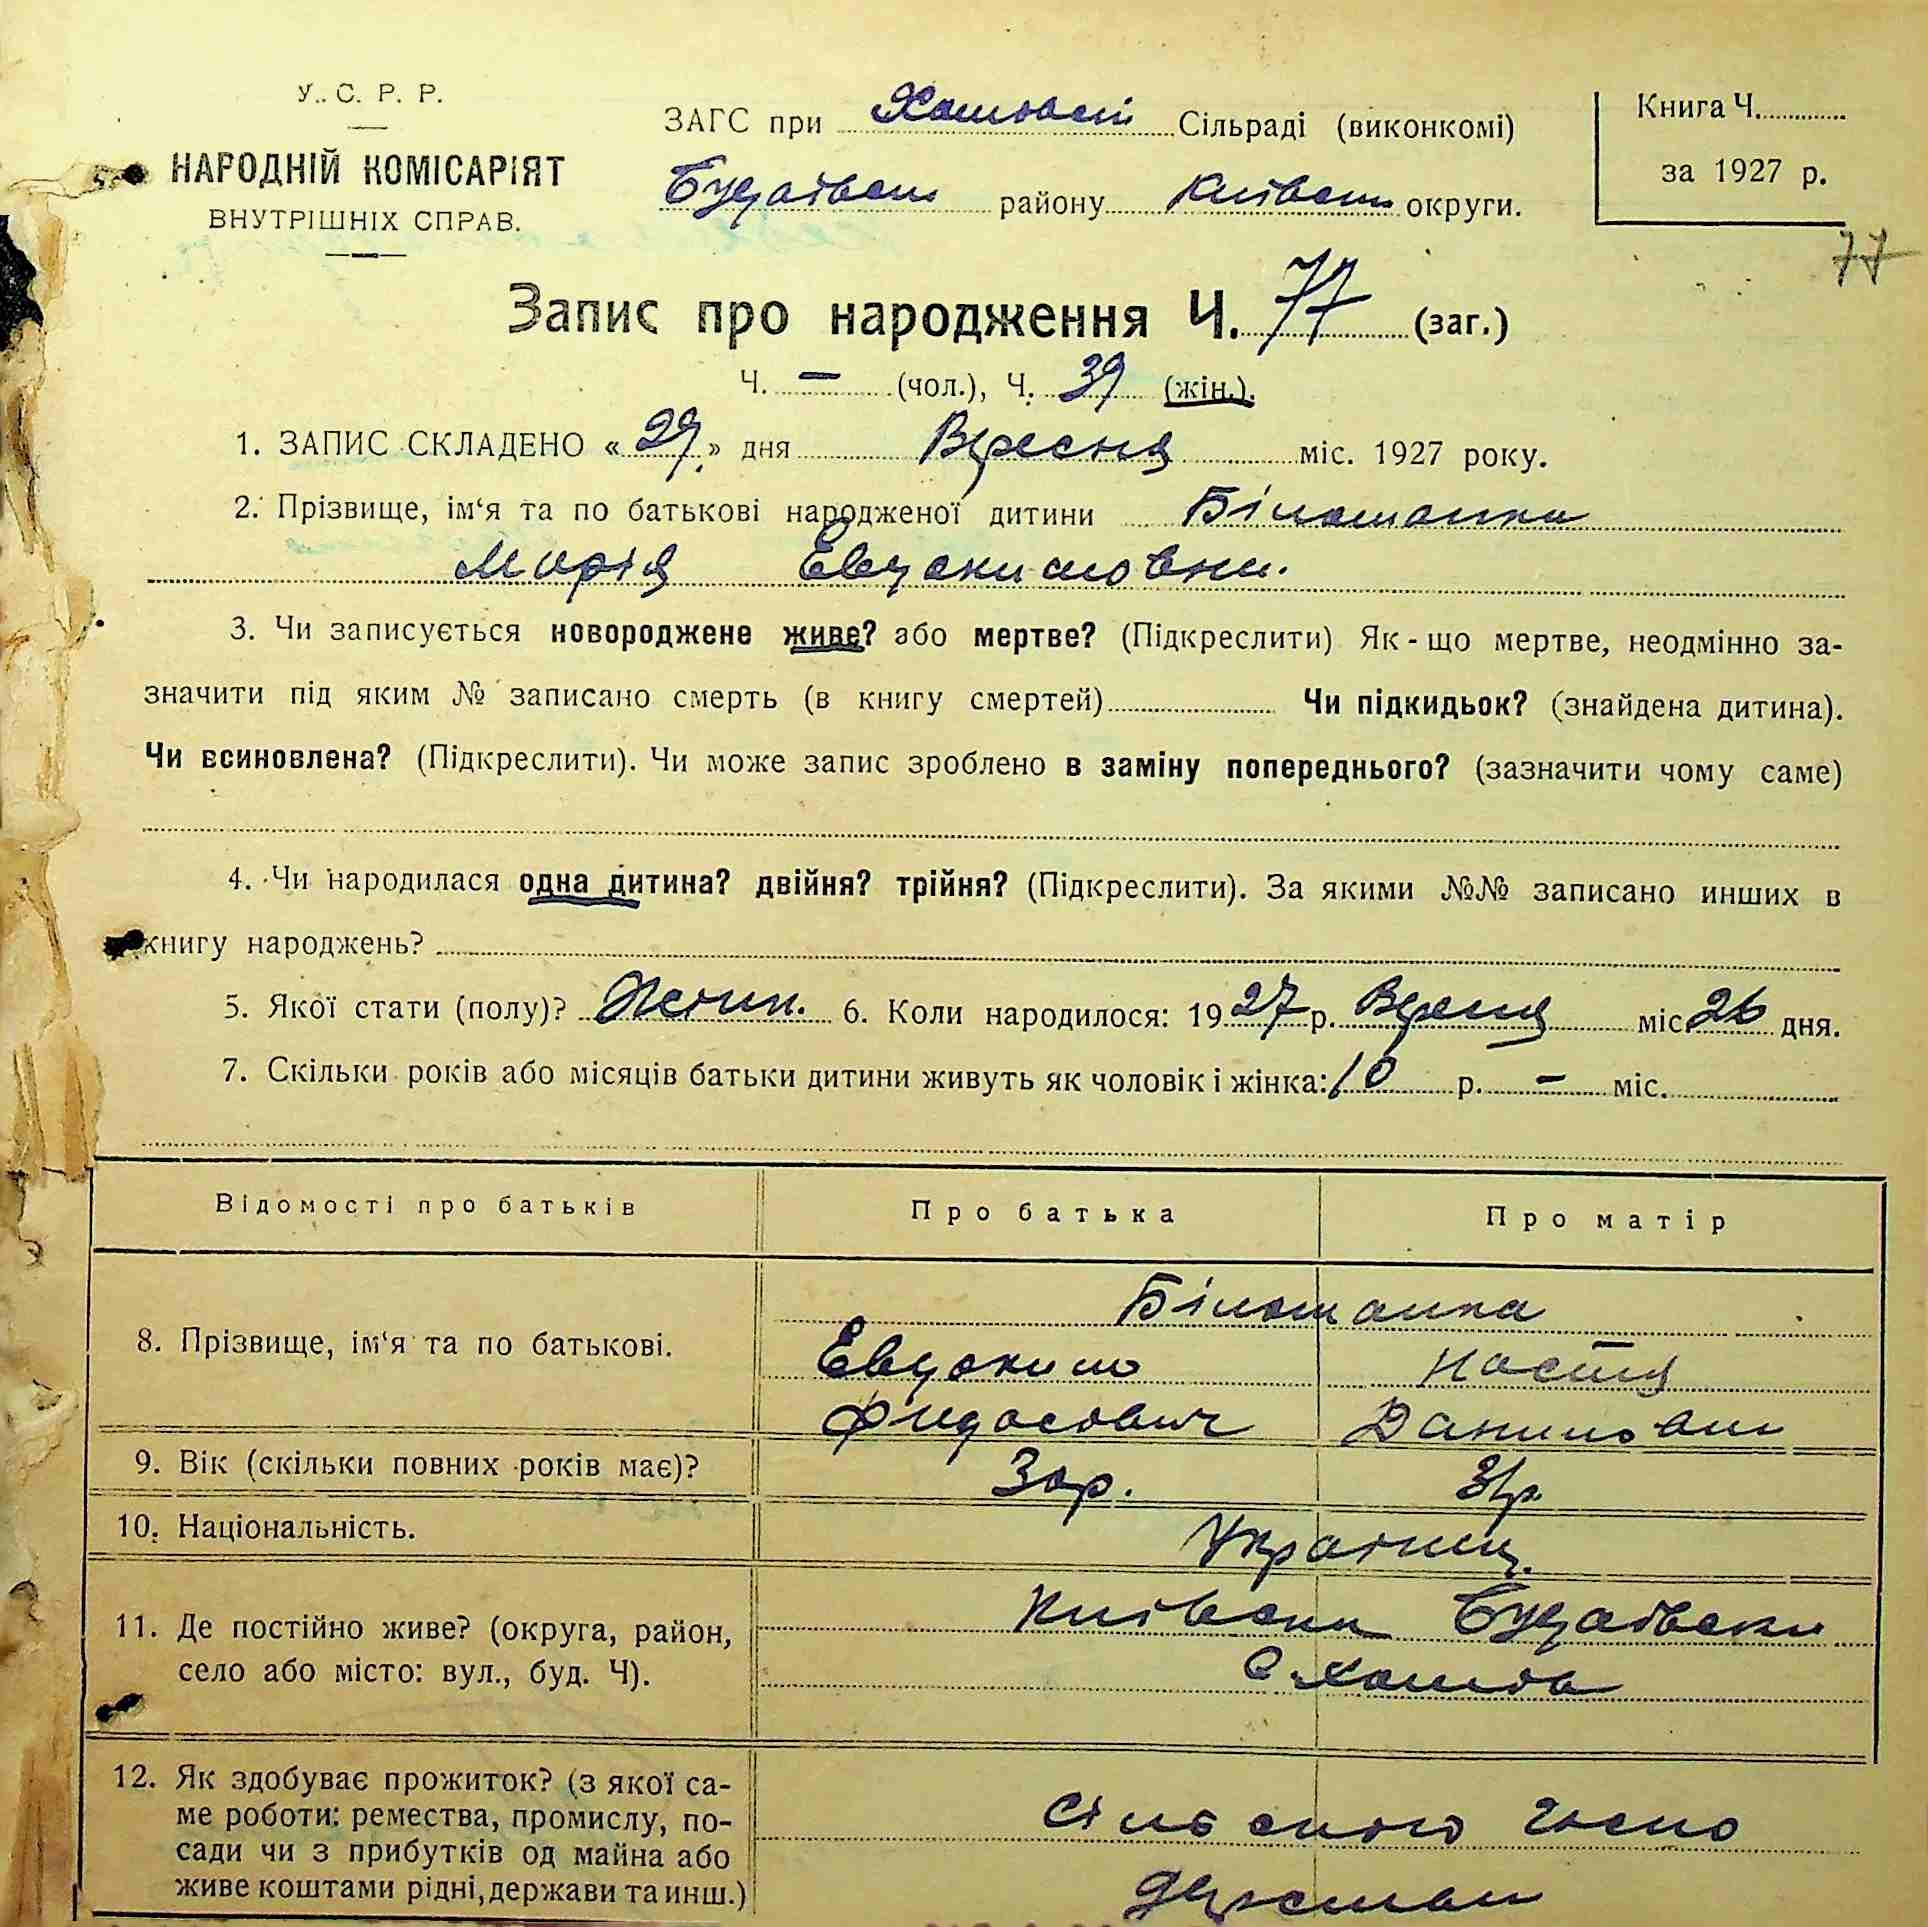 У. С. Р. Р.
НАРОДНІЙ КОМІСАРІЯТ
ВНУТРІШНІХ СПРАВ.
ЗАГС при Хотовськ Сільраді (виконкомі)
Будаівськ району Київськ округи.
Книга Ч.
за 1927 р.
77
Запис про народження Ч. 77 (заг.)
Ч. — (чол.), Ч. 39 (жін.).
1. ЗАПИС СКЛАДЕНО « 29 » дня Вересня міс. 1927 року.
2. Прізвище, ім‘я та по батькові народженої дитини Білошапка
Марія Евдокимовни.
3. Чи записується новороджене живе? або мертве? (Підкреслити) Як-що мертве, неодмінно за-
значити під яким № записано смерть (в книгу смертей) Чи підкидьок? (знайдена дитина).
Чи всиновлена? (Підкреслити). Чи може запис зроблено в заміну попереднього? (зазначити чому саме)
4. Чи народилася одна дитина? двійня? трійня? (Підкреслити). За якими №№ записано инших в
книгу народжень?
5. Якої стати (полу)? 6. Коли народилося: 1927 р. Вересня міс. 26 дня.
7. Скільки років або місяців батьки дитини живуть як чоловік і жінка: 10 р. — міс.
Відомості про батьків Про батька Про матір
8. Прізвище, ім‘я та по батькові.
Білошапка
Евдоким Настя
Федосович Данилови
9. Вік (скільки повних років має)? 30р. 31р.
10. Національність. Українц.
11. Де постійно живе? (округа, район,
село або місто: вул., буд. Ч).
Київськи Будаівськи
с. Хотів
12. Як здобуває прожиток? (з якої са-
ме роботи: ремества, промислу, по-
сади чи з прибутків од майна або
живе коштами рідні, держави та инш.)
Сільського госпо